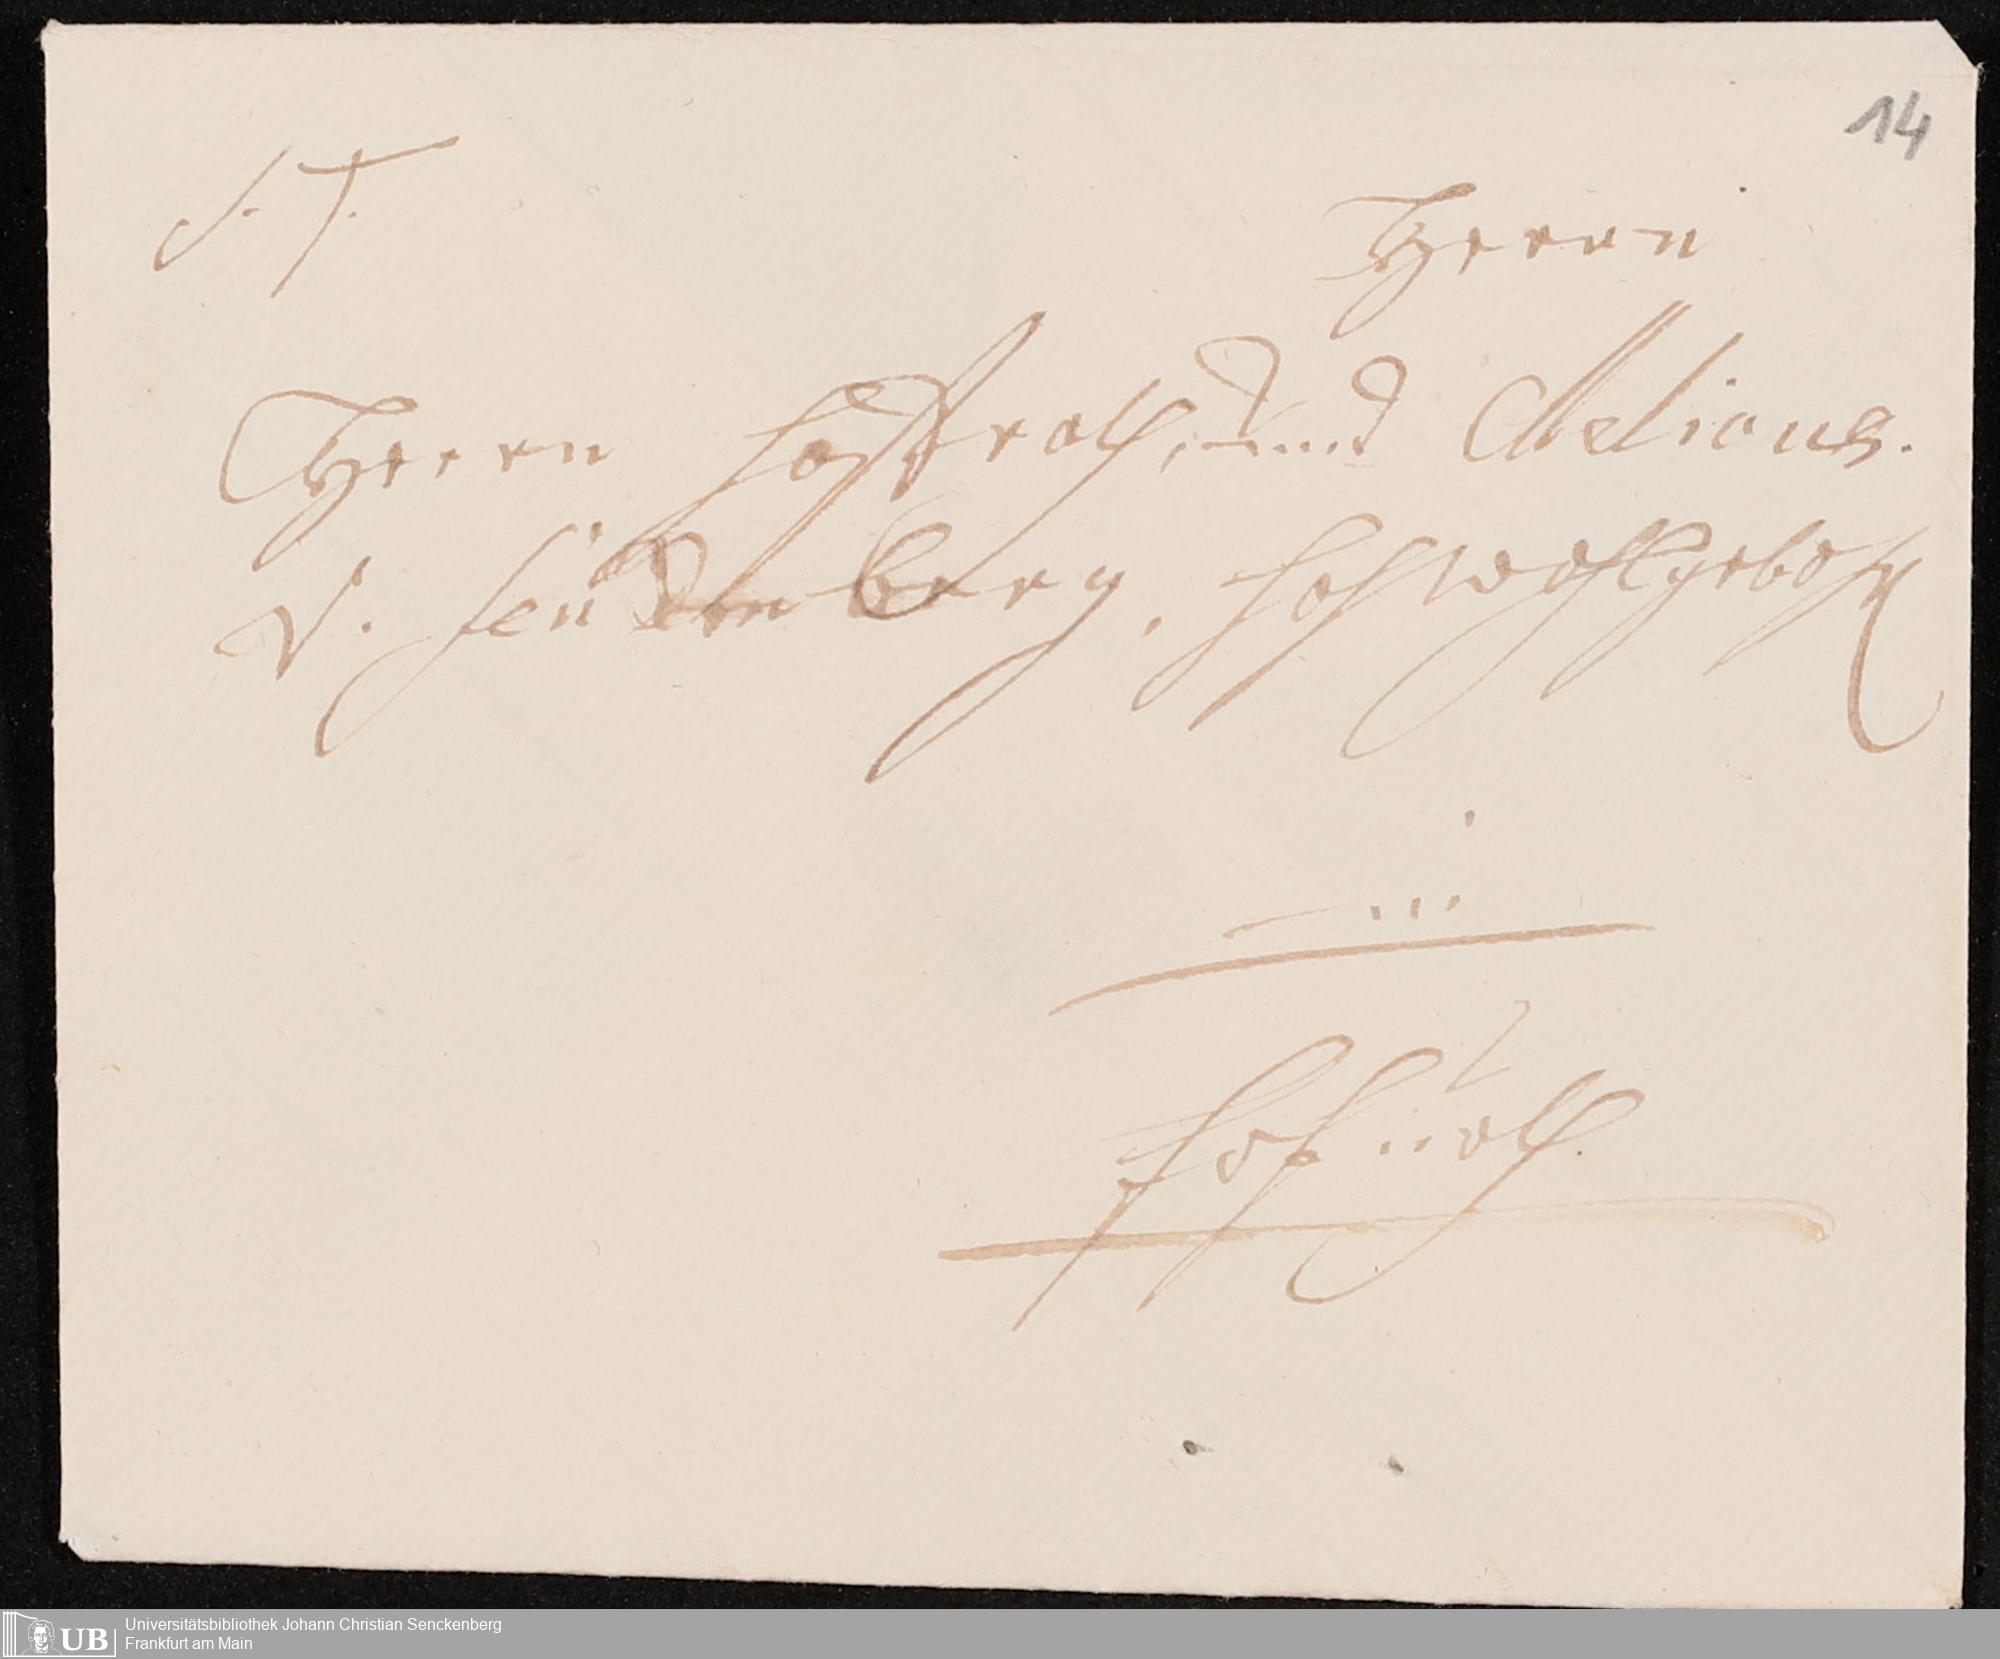 14
S. T.
Herrn
Herrn Hoffrath, und Aelious.
v. berg, Hochwohlgebohr
Hofrath.
UB Universitätsbibliothek Johann Christian Senckenberg
Frankfurt am Main